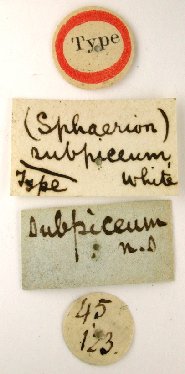 Type
(Sphaerion)
subpiceum,
Type White
subpiceum
n.s
45
123.